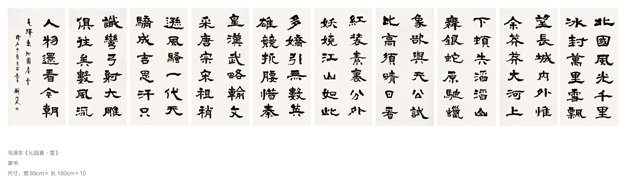 北國風光千里
冰封萬里雪飄
望長城內外惟
余莽莽大河上
下頓失滔滔山
舞銀蛇原馳蠟
象欲與天公試
比高須晴日看
紅裝素裹分外
妖嬈江山如此
多嬌引無數英
雄競折腰惜秦
皇漢武略輸文
采唐宗宋祖稍
遜風騷一代天
驕成吉思汗只
識彎弓射大雕
俱往矣數風流
人物還看今朝
毛澤東沁園春雪
毛泽东《沁园春·雪》
隶书
尺寸：宽 89cm × 长 180cm × 10